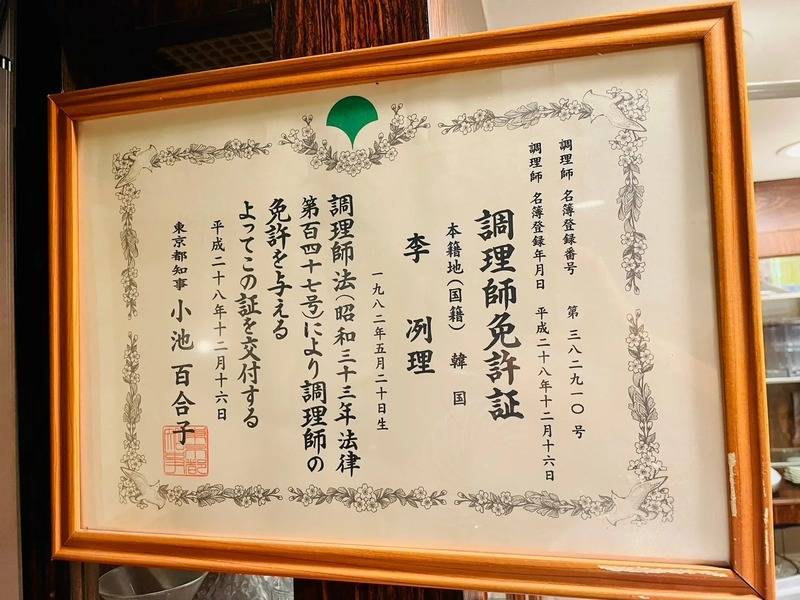 調理師 名簿登録番号 第 三八二九一〇 号
調理師 名簿登録年月日 平成二十八年十二月十六日
調理師免許証
本籍地(国籍) 韓国
李 冽理
一九八二年五月二十日生
調理師法(昭和三十三年法律
第百四十七号)により調理師の
免許を与える
よってこの証を交付する
平成二十八年十二月十六日
東京都知事 小池百合子